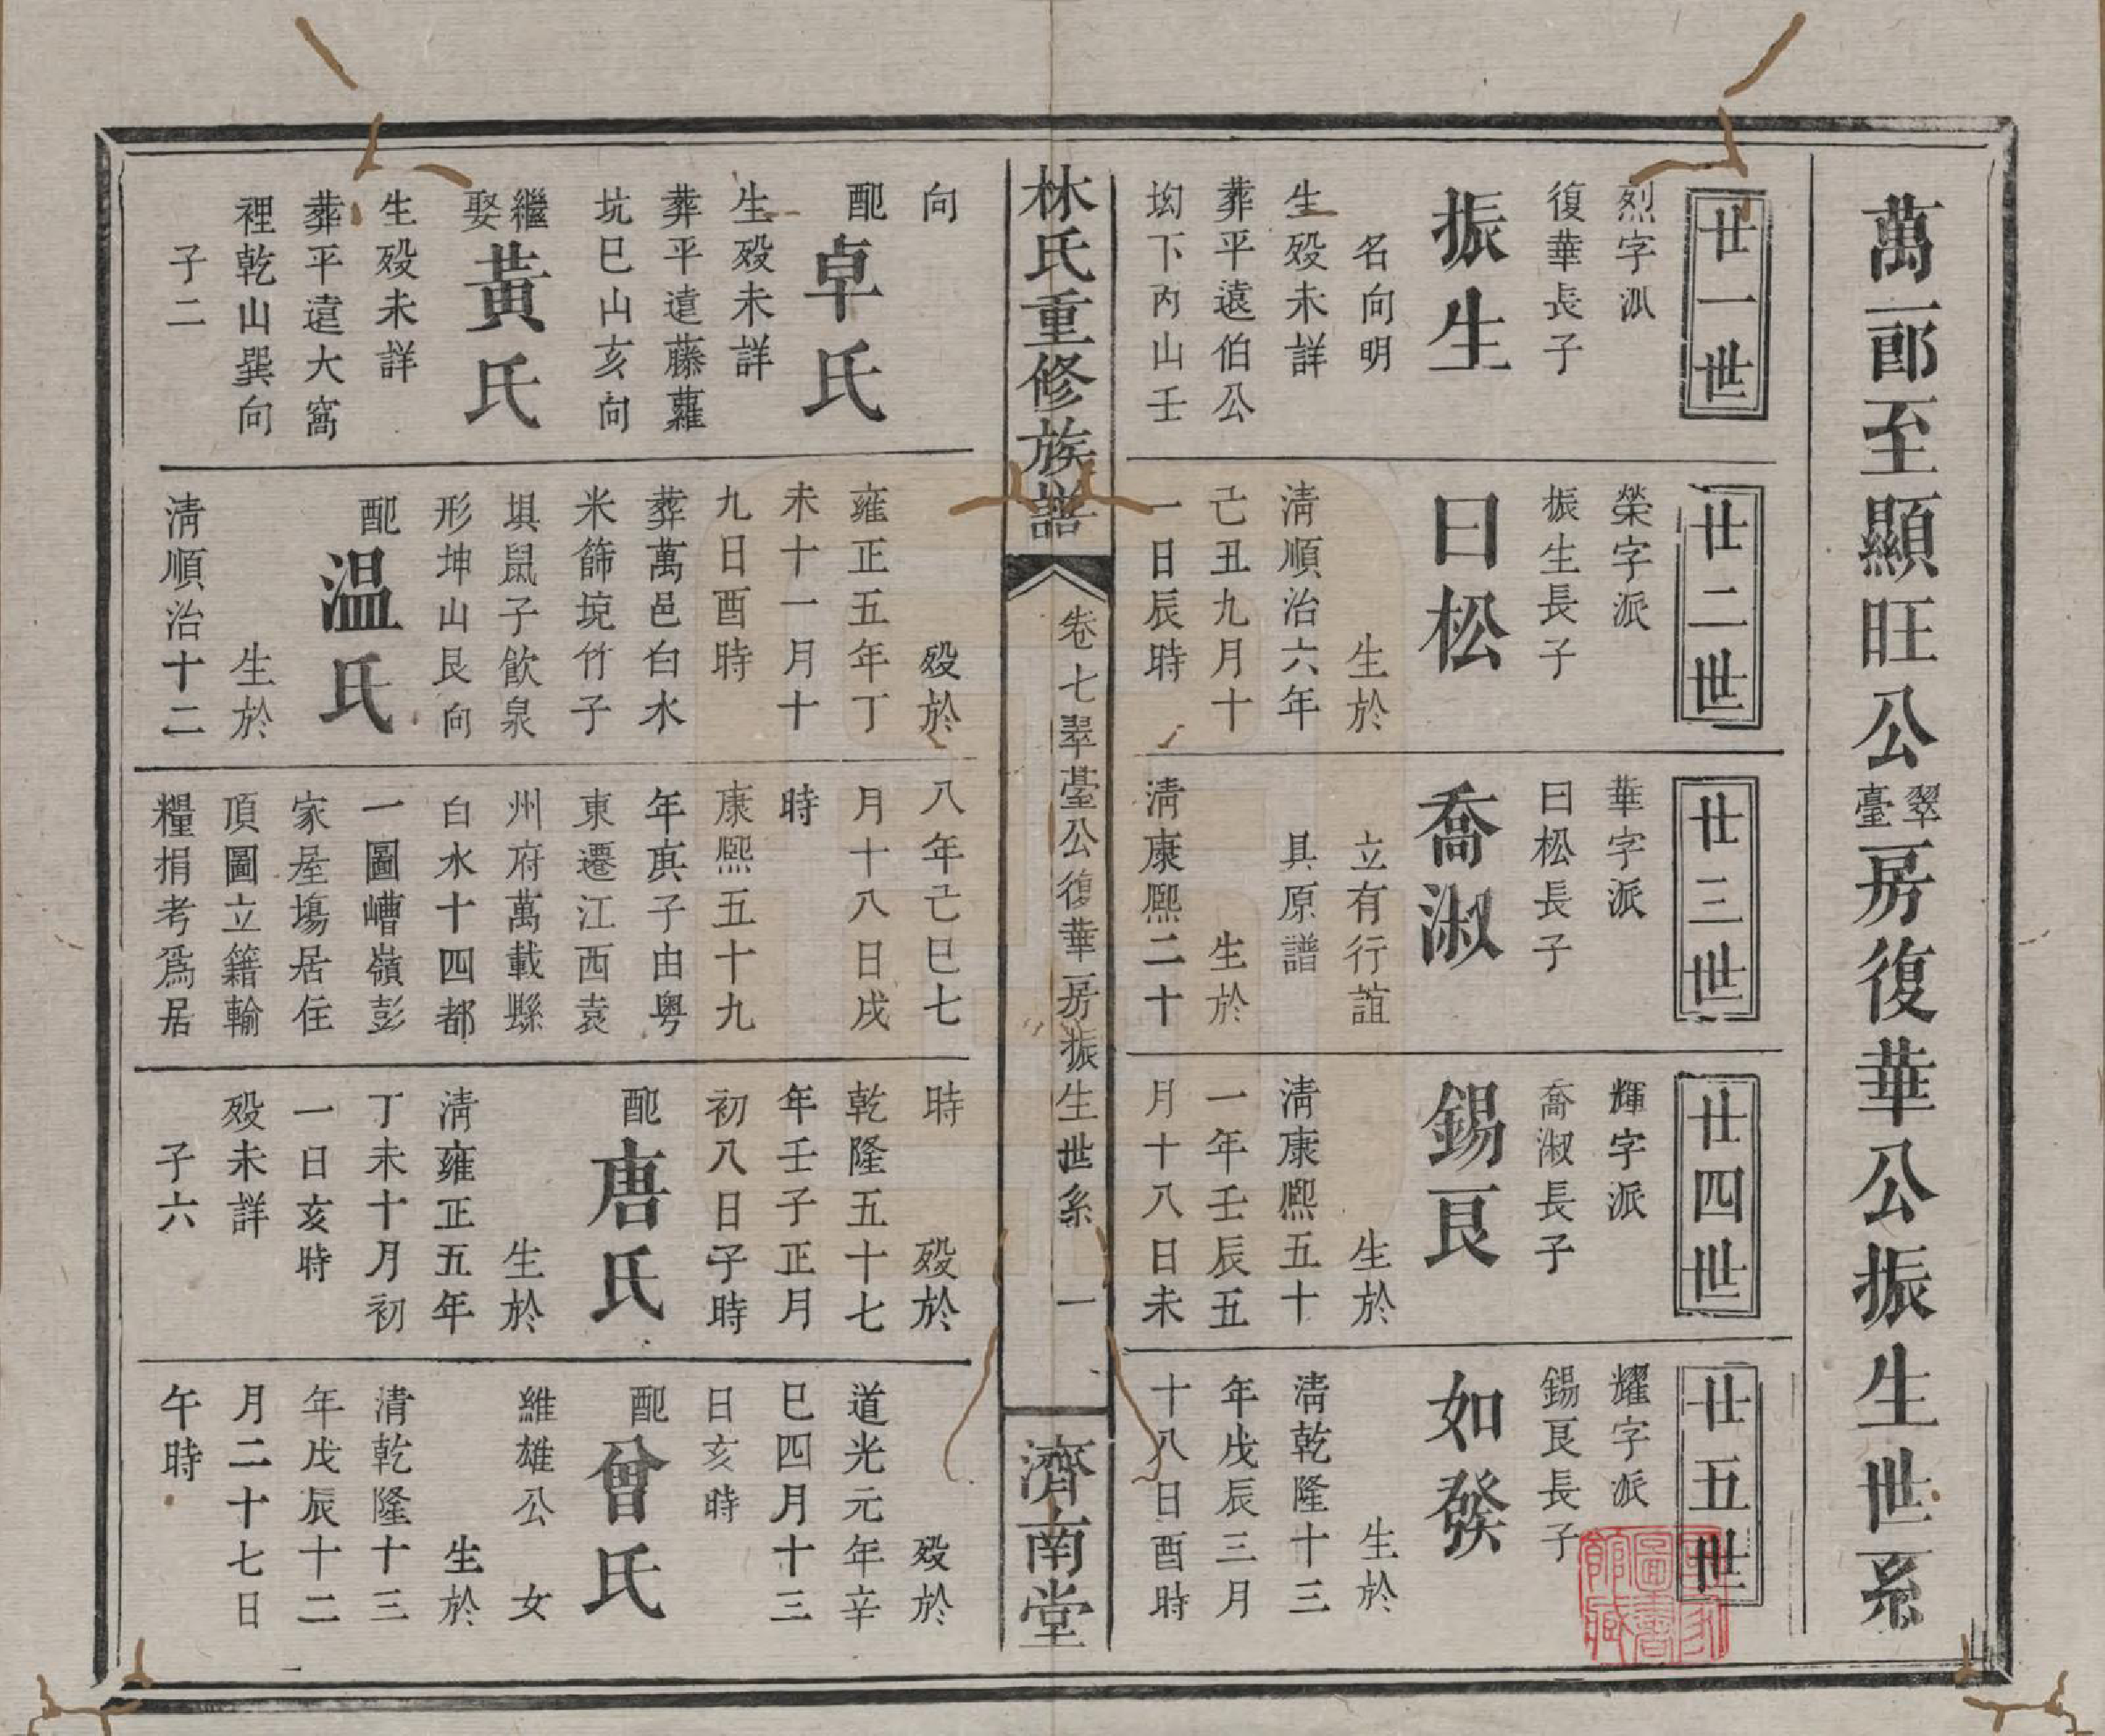 萬一郎至顯旺公翠臺房復華公振生世系
廿一世
烈字派
復華長子
振生
名向明
生殁未詳
葬平遠伯公
坳下丙山壬
廿二世
榮字派
振生長子
曰松
生於
清順治六年
己丑九月十
一日辰時
廿三世
華字派
曰松長子
喬淑
立有行誼
具原譜
生於
清康熙二十
廿四世
輝字派
喬淑長子
錫艮
生於
清康熙五十
一年壬辰五
月十八日未
廿五世
耀字派
錫艮長子
如發
生於
清乾隆十三
年戊辰三月
十八日酉時
林氏重修族譜
卷七翠臺公復華房振生世系 一
濟南堂
向
配卓氏
生殁未詳
葬平遠藤蘿
坑巳山亥向
繼娶黃氏
生殁未詳
葬平遠大窩
裡乾山巽向
子二
殁於
雍正五年丁
未十一月十
九日酉時
葬萬邑白水
米篩境竹子
埧鼠子飲泉
形坤山艮向
配温氏
生於
清順治十二
八年己巳七
月十八日戌
時
康熙五十九
年庚子由粵
東遷江西袁
州府萬載縣
白水十四都
一圖嶆嶺彭
家屋塲居住
頂圖立籍輸
糧捐考為居
時
殁於
乾隆五十七
年壬子正月
初八日子時
配唐氏
生於
清雍正五年
丁未十月初
一日亥時
殁未詳
子六
殁於
道光元年辛
巳四月十三
日亥時
配曾氏
維雄公 女
生於
清乾隆十三
年戊辰十二
月二十七日
午時